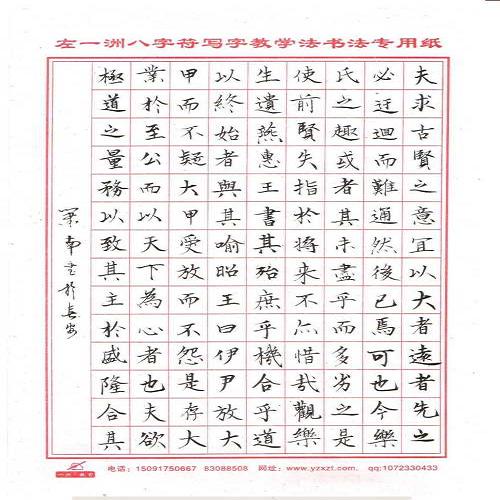 左一洲八字符写字教学法书法专用纸
夫求古賢之意宜以大者遠者先之
必迂迴而難通然後已焉可也今樂
氏之趣或者其未盡乎而多劣之是
使前賢失指於將來不亦惜哉觀樂
生遺燕惠王書其殆庶乎機合乎道
以終始者與其喻昭王曰伊尹放大
甲而不疑大甲受放而不怨是存大
業於至公而以天下為心者也夫欲
極道之量務以致其主於盛隆合其
書於長安
电话：15091750667 83088508 网址：www.yzxzt.com. qq:1072330433